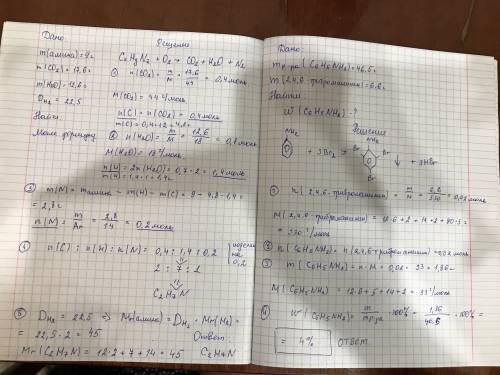 Дано:
m(амина)=9г
m(CO2)=17,6г
m(H2O)=12,6г
DH2=22,5
Найти
Моле формулу
Решение
CxHyNz + O2 → CO2 + H2O + N2
① n(CO2)= m/M = 17,6/44 = 0,4 моль
M(CO2)=44 г/моль
n(C)=n(CO2)=0,4 моль
m(C)=0,4·12=4,8г
② n(H2O)= m/M = 12,6/18 =
M(H2O)=18 г/моль
n(H)=2n(H2O)=0,7·2=1,4 моль
m(H)=1,4·1=1,4г
③ m(N)= mамина − m(H) − m(C)= 9−4,8−1,4=
=2,8г
n(N)= m/Ar = 2,8/14 = 0,2 моль
④ n(C):n(H):n(N)= 0,4:1,4:0,2
на 0,2
2:7:1
C2H7N
⑤ DH2=22,5 ⇒ Mr(амина)=DH2·Mr(H2)=
=22,5·2=45
Ответ:
Mr(C2H7N)=12·2+7+14=45 C2H7N
Дано:
mр-ра(C6H5NH2)=46,5г
m(2,4,6-триброманилин)=6,6г
Найти:
W(C6H5NH2)-?
Решение
NH2 NH2
+ 3Br2 → Br Br ↓ + 3HBr
Br
① n(2,4,6-триброманилин)= m/M = /330 = 0,02 моль
M(2,4,6-триброманилин)= 12·6+2+14+2+80·3=
=330 г/моль
② n(C6H5NH2)=n(2,4,6-триброманилин)=0,02 моль
③ m(C6H5NH2)=n·M=0,02·93=1,86г
M(C6H5NH2)=12·6+5+14+2=93 г/моль
④ W(C6H5NH2)= m/mр-ра ·100%= 1,86/46,5 ·100%=
= 4% ОТВЕТ